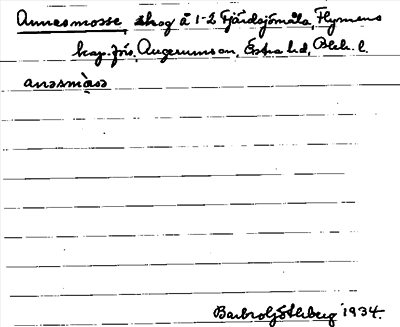 Annesmosse, skog å 1-2 Fjärdsjömåla, Flymens
kap.förs. Augerums sn, Östra hd, Blek. l.
anəsmòsə
Barbro Göthberg 1934.